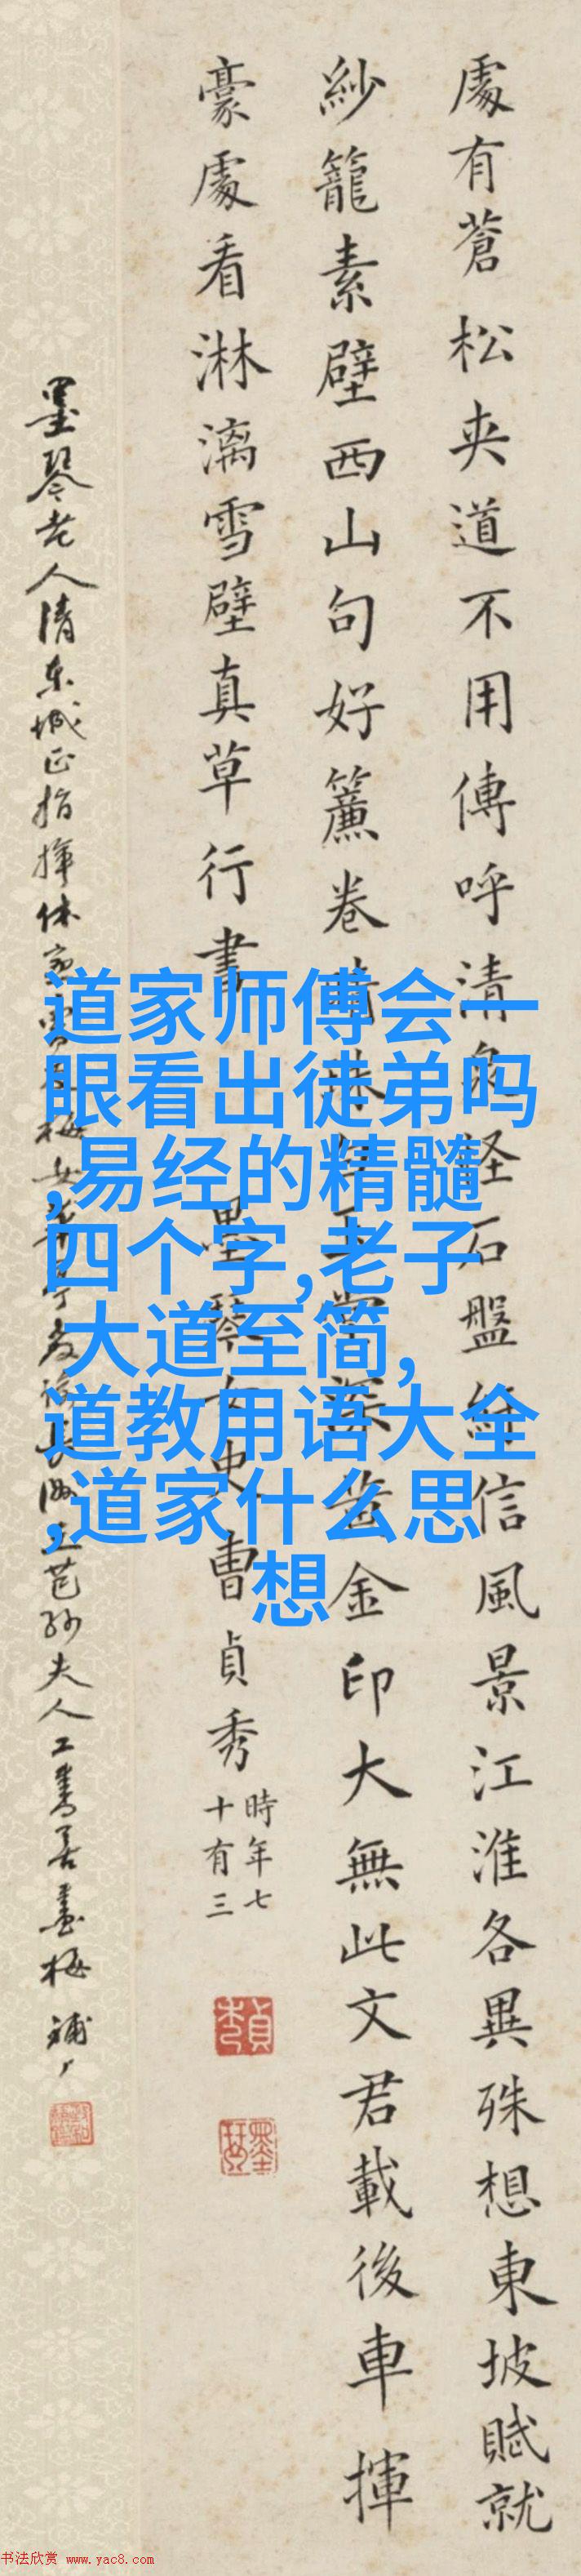 處有蒼松夾道不用傳呼清泉経石盤紆信風景江淮各異殊想東坡賦就
紗籠素壁西山句好簾卷晴珠
金印大無此文君載後車揮
豪處看淋漓雪壁真草行書
墨琴女史曹貞秀
時年七
十有三
墨琴老人清東城正指揮休
夫人工書善畫梅
道家师傅会一
眼看出徒弟吗
,易经的精髓
四个字,老子
大道至简,
道教用语大全
,道家什么思
想
书法欣赏 www.yac8.com